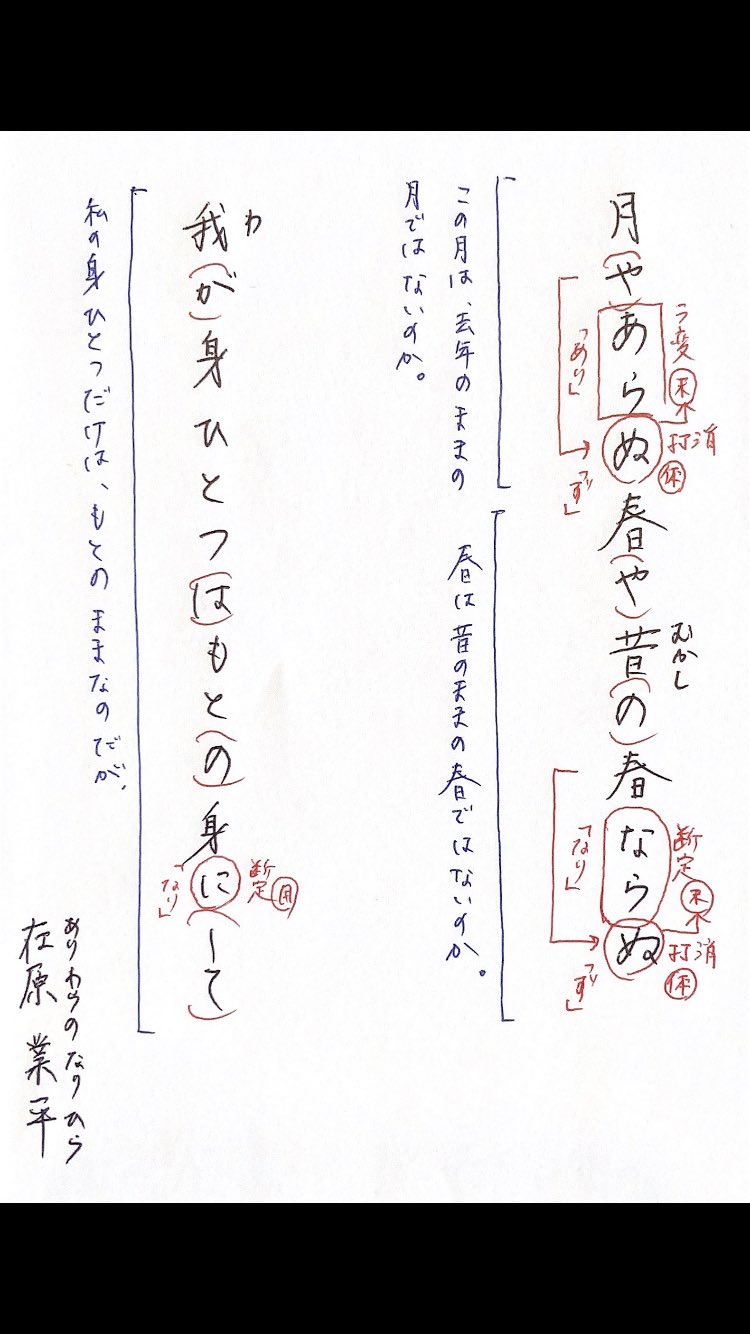 月(や)あらぬ春(や)昔(の)春ならぬ
ラ変㊍打消㊡
むかし
断定㊍打消㊡
「あり」
「ず」
「なり」
「ず」
この月は、去年のままの
月ではないのか。
春は昔のままの春ではないのか。
我(が)身ひとつ(は)もと(の)身に(して)
わ
断定㊊
「なり」
私の身ひとつだけは、もとのままなのだが、
ありわらのなりひら
在原業平